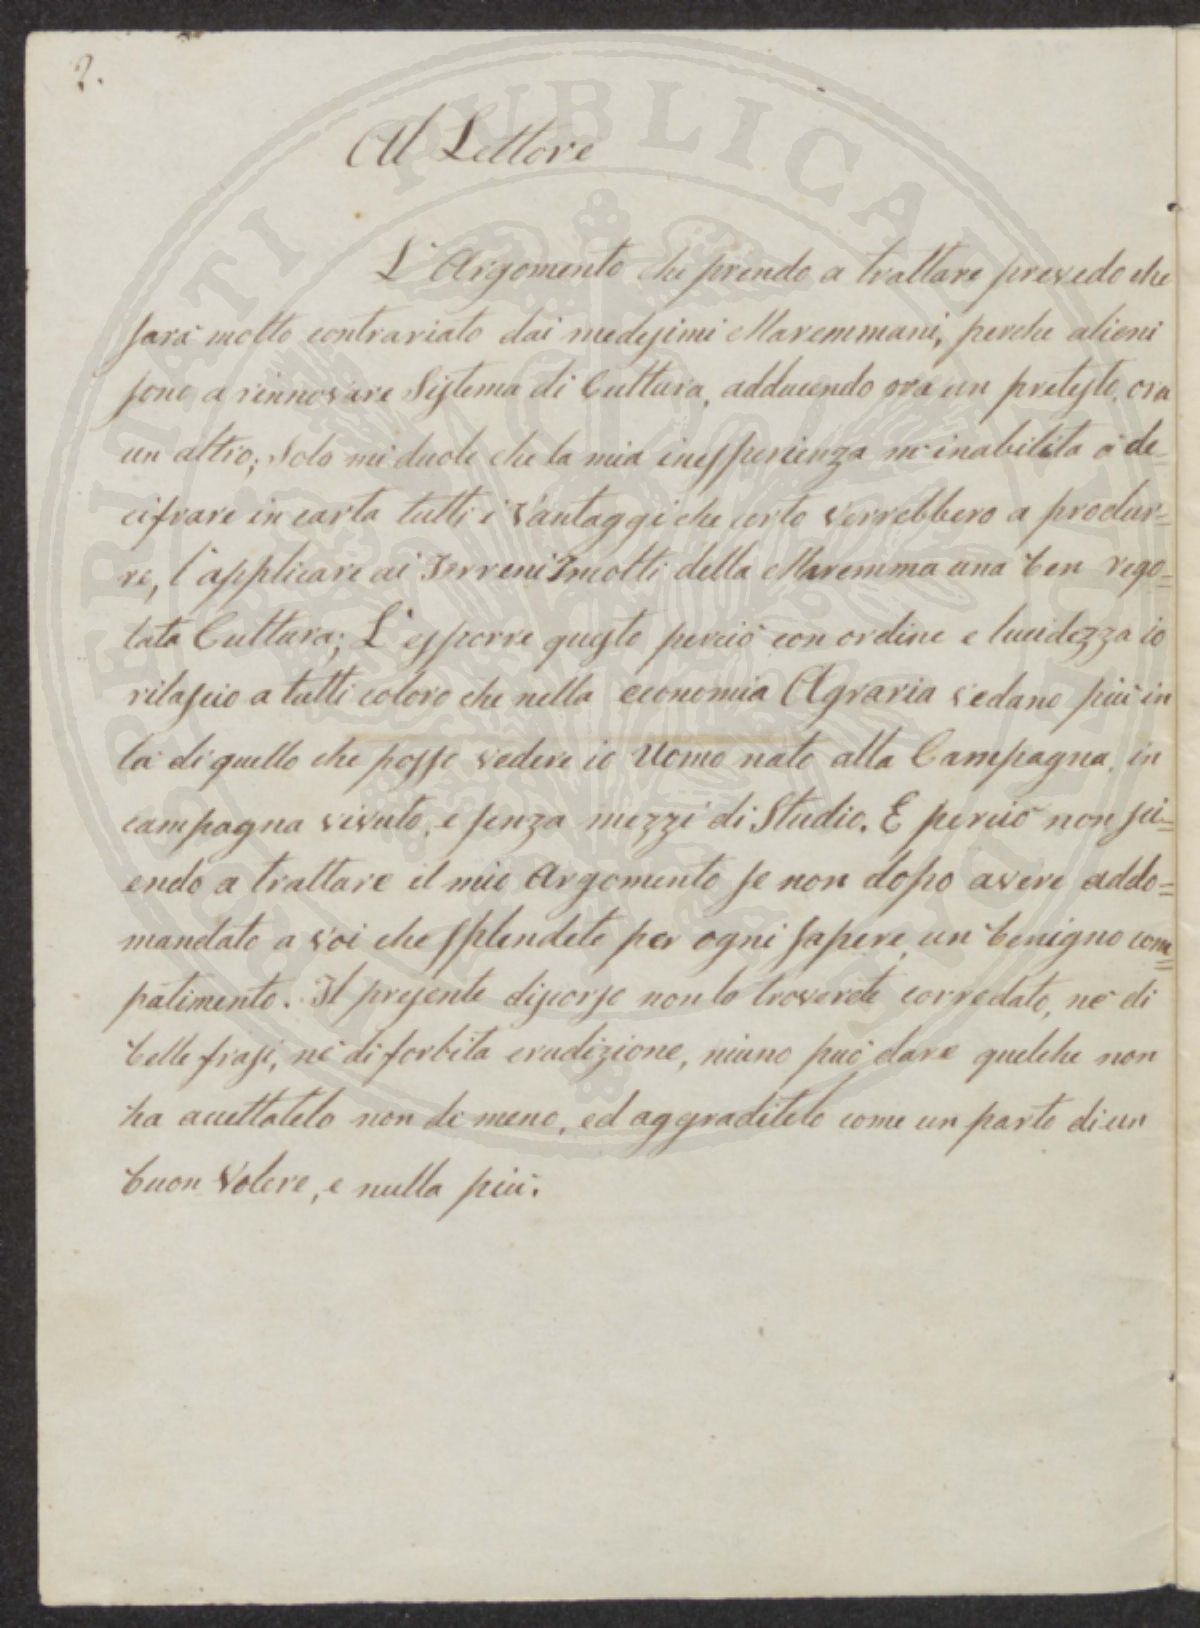 2.
Al Lettore
L'Argomento che prendo a trattare prevedo che
sarà molto contrariato dai medesimi Maremmani, perche alieni
sono a rinnovare Sistema di Cultura, adducendo ora un pretesto, ora
un altro; Solo mi duole che la mia inesperienza m'inabilita a de-
cifrare in carta tutti i Vantaggi che certo verrebbero a produr=
re, l'applicare ai Terreni Incolti della Maremma una ben rego=
lata Cultura; L'esporre queste perciò con ordine e lucidezza io
rilascio a tutti coloro che nella economia Agraria vedano più in
là di quello che posso vedere io Uomo nato alla Campagna, in
campagna vivuto, e senza mezzi di Studio. E perciò non sci=
endo a trattare il mio Argomento se non dopo avere addo=
mandato a voi che splendete per ogni sapere, un benigno com=
patimento. Il presente discorso non lo troverete corredato, nè di
belle frasi, nè di forbita erudizione, niuno può dare quelche non
ha accettatelo non di meno, ed aggraditelo come un parto di un
buon Volere, e nulla più.
PROSPERITATI PUBLICAE